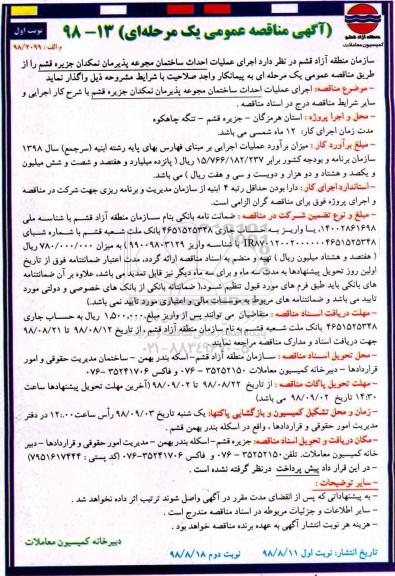 (آگهی مناقصه عمومی یک مرحله‌ای) ۱۳- ۹۸
نوبت اول
م الف: ۹۸/۷۰۹۹
سازمان منطقه آزاد قشم
کمیسیون معاملات
سازمان منطقه آزاد قشم در نظر دارد اجرای عملیات احداث ساختمان مجموعه پذیرمان نمکدان جزیره قشم را از
طریق مناقصه عمومی یک مرحله ای به پیمانکار واجد صلاحیت با شرایط مشروحه ذیل واگذار نماید
- موضوع مناقصه: اجرای عملیات احداث ساختمان مجموعه پذیرمان نمکدان جزیره قشم با شرح کار اجرایی و
سایر شرایط مناقصه درج در اسناد مناقصه .
- محل و اجرا پروژه : استان هرمزگان - جزیره قشم - تنگه چاهکوه
مدت زمان اجرای کار: ۱۲ ماه شمسی می باشد.
- مبلغ برآورد کار : میزان برآورد عملیات اجرایی بر مبنای فهارس بهای پایه رشته ابنیه (سرجمع) سال ۱۳۹۸
سازمان برنامه و بودجه کشور برابر ۱۵/۷۶۶/۱۸۲/۲۳۷ ریال ( پانزده میلیارد و هفتصد و شصت و شش میلیون
و یکصد و هشتاد و دو هزار و دویست و سی و هفت ریال ) می باشد.
- استاندارد اجرای کار : دارا بودن حداقل رتبه ۴ ابنیه از سازمان مدیریت و برنامه ریزی جهت شرکت در مناقصه
و اجرای پروژه فوق برای مناقصه گران الزامی است.
- مبلغ و نوع تضمین شرکت در مناقصه : ضمانت نامه بانکی بنام سازمان منطقه آزاد قشم با شناسه ملی
۱۴۰۰۲۸۶۱۶۹۸، یا واریز به حساب جاری ۴۶۵۱۵۲۵۳۴۸ بانک ملت شعبه قشم با شماره شبای
IR۸۷۰۱۲۰۰۲۰۰۰۰۰۴۶۵۱۵۲۵۳۴۸ با شناسه واریز ۹۹۰۰۹۸۰۳۱۲۹ به میزان ۷۸۰/۰۰۰/۰۰۰ ریال
( هفتصد و هشتاد میلیون ریال ) تهیه و منضم به اسناد مناقصه ارائه گردد، مدت اعتبار ضمانتنامه فوق از تاریخ
اولین روز تحویل پیشنهادها به مدت سه ماه و برای سه ماه دیگر نیز قابل تمدید می باشد، علاوه بر آن ضمانتنامه
های بانکی باید طبق فرم های مورد قبول تنظیم شود.( ضمانتنامه بانکی از بانک های خصوصی و دولتی مورد
تایید می باشد و ضمانتنامه های مربوط به موسسات مالی و اعتباری مورد تایید نمی باشد.)
- مهلت دریافت اسناد مناقصه : متقاضیان می توانند پس از واریز مبلغ ۱.۵۰۰.۰۰۰ ریال به حساب جاری
۴۶۵۱۵۲۵۳۴۸ بانک ملت شعبه قشم به نام سازمان منطقه آزاد قشم ، از تاریخ ۹۸/۰۸/۱۲ تا ۹۸/۰۸/۲۱
جهت دریافت اسناد و مدارک مناقصه مراجعه نمایند
- محل تحویل اسناد مناقصه : سازمان منطقه آزاد قشم - اسکه بندر بهمن - ساختمان مدیریت حقوقی و امور
قراردادها - دبیرخانه کمیسیون معاملات ۳۵۲۵۲۱۵۰ - ۰۷۶ و فاکس ۳۵۲۴۱۷۰۶ -۰۷۶
- مهلت تحویل پاکات مناقصه : از تاریخ ۹۸/۰۸/۲۲ تا ۹۸/۰۹/۰۲ (آخرین مهلت تحویل پیشنهادها ساعت
۱۴:۳۰ تاریخ ۹۸/۰۹/۰۲ می باشد)
- زمان و محل تشکیل کمیسیون و بازگشایی پاکتها: یک شنبه تاریخ ۹۸/۰۹/۰۳ رأس ساعت ۱۲:۰۰ در دفتر
مدیریت امور حقوقی و قراردادها ، واقع در اسکله بندر بهمن قشم .
- مکان دریافت و تحویل اسناد مناقصه: جزیره قشم- اسکله بندر بهمن - مدیریت امور حقوقی و قراردادها - دبیر
خانه کمیسیون معاملات. تلفن ۳۵۲۵۲۱۵۰ - ۰۷۶ و فاکس ۳۵۲۴۱۷۰۶-۰۷۶ (کد پستی : ۷۹۵۱۶۱۷۴۴۴)
- در این قرار داد پیش پرداخت درنظر گرفته نشده است .
- سایر توضیحات :
- به پیشنهاداتی که پس از انقضای مدت مقرر در آگهی واصل شوند ترتیب اثر داده نخواهد شد .
- سایر اطلاعات و جزئیات مربوطه در اسناد مناقصه مندرج است .
- هزینه هر نوبت انتشار آگهی به عهده برنده مناقصه خواهد بود .
دبیرخانه کمیسیون معاملات
تاریخ انتشار: نوبت اول ۹۸/۸/۱۱ نوبت دوم ۹۸/۸/۱۸